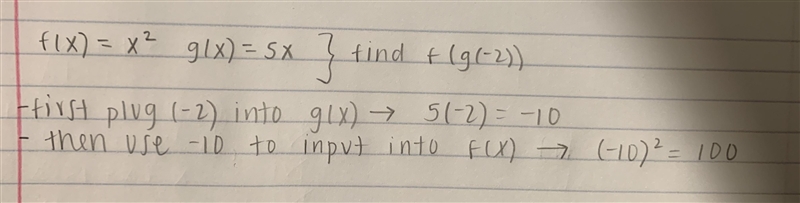 f(x) = x² g(x) = 5x } find f(g(-2))
- first plug (-2) into g(x) → 5(-2) = -10
- then use -10 to input into f(x) → (-10)² = 100